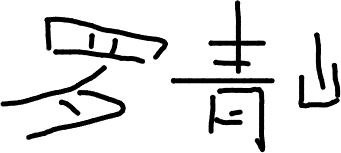 罗青山